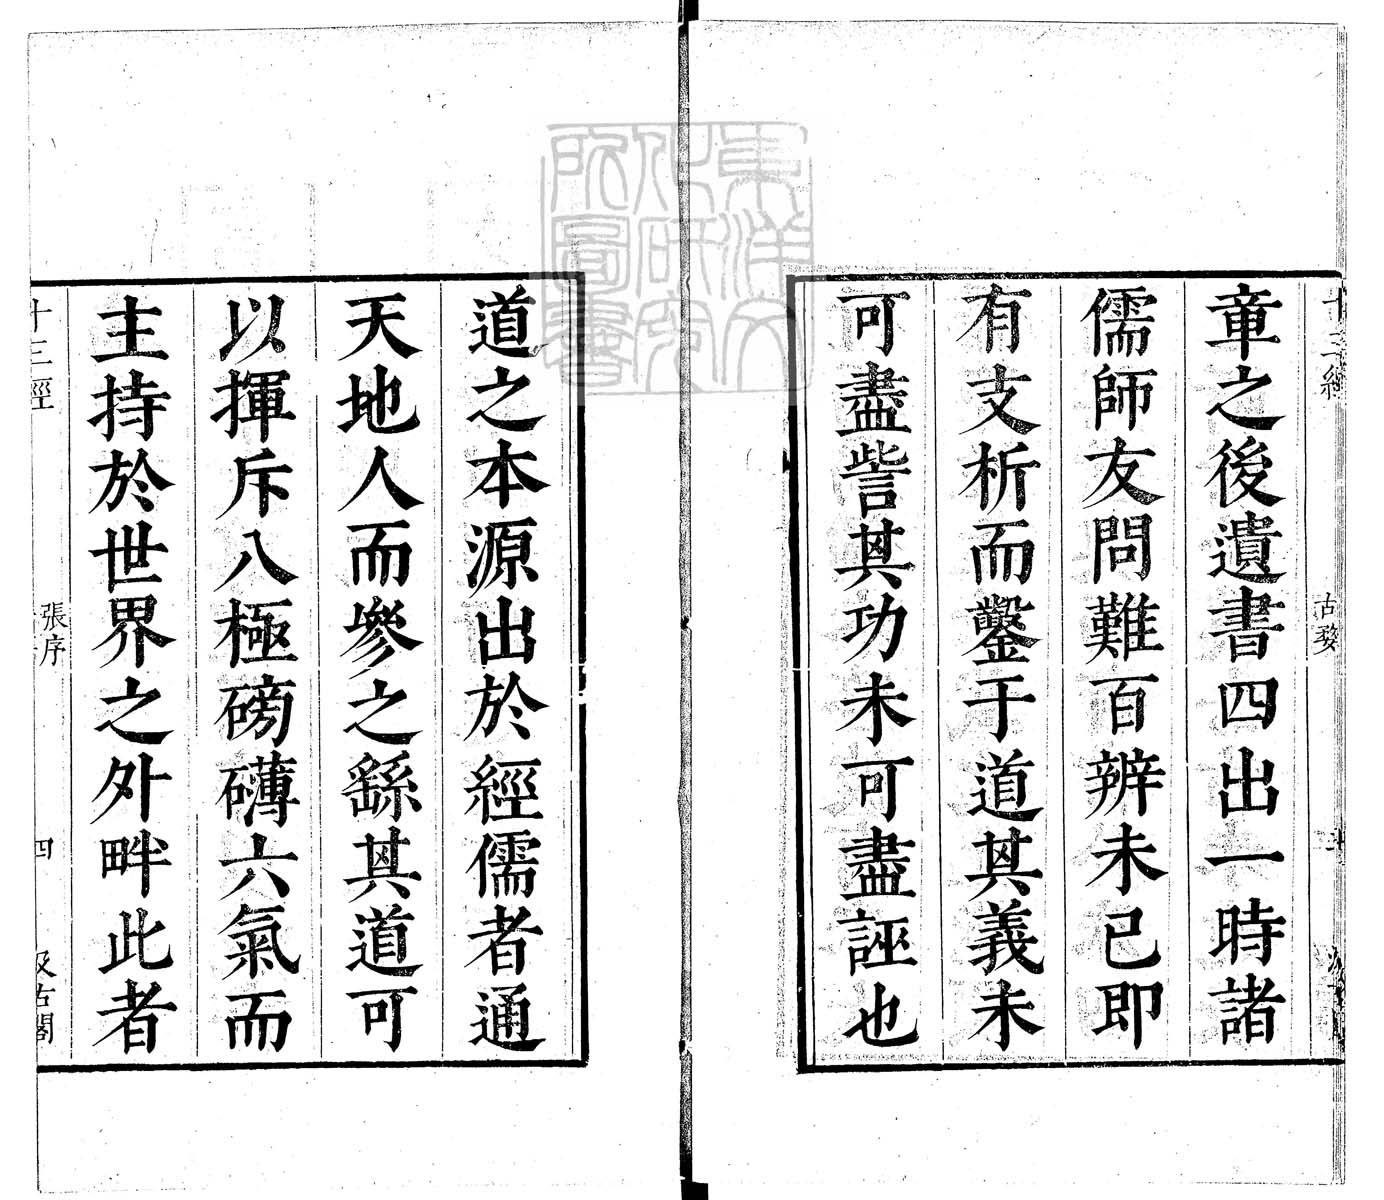 章之後遺書四出一時諸
儒師友問難百辨未已即
有支析而鑿于道其義未
可盡訾其功未可盡誣也
道之本源出於經儒者通
天地人而參之繇其道可
以揮斥八極磅礴六氣而
主持於世界之外畔此者
十三經
張序
四
汲古閣
東洋文
化研究
所圖書